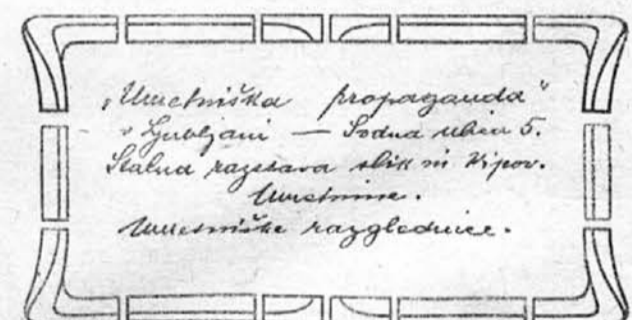 „Umetniška propaganda“
v Ljubljani — Sodna ulica 5.
Stalna razstava slik in kipov.
Umetnine.
Umetniške razglednice.